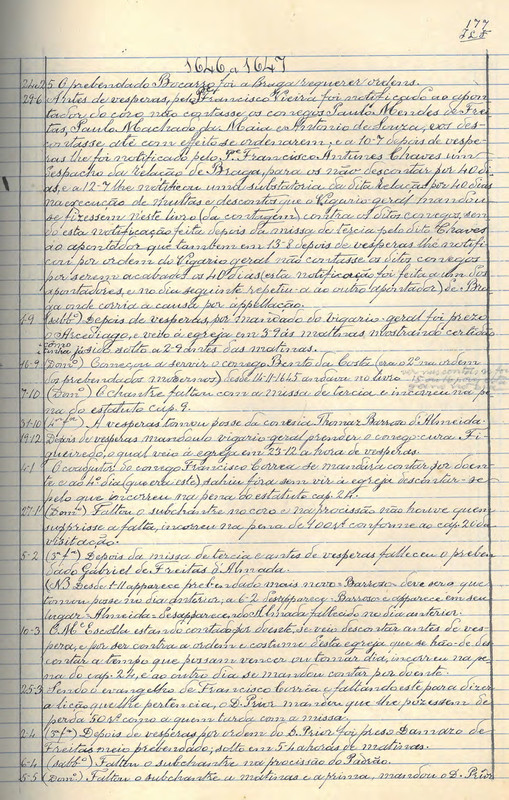 177
J.L.F.
1646 a 1647
24 a 25 O prebendado Bocarro foi a Braga requerer ordens.
29-6 Antes de vesperas, pelo Francisco Vieira foi notificado ao apon-
tador do coro não contasse os conegos Paulo Mendes de Frei-
tas, Paulo Machado da Maia e Antonio de Souza, e os des-
contasse até com effeito se ordenarem; e a 10-7 depois de vespe-
ras lhe foi notificado pelo Pe Francisco Antunes Chaves um
despacho da relação de Braga, para os não descontar por 40 di-
as, e a 12-7 lhe notificou umd substatoria da dita Relação por 40 dias
na execução de multas e descontos que o Vigario geral mandou
se fizessem neste livro (da contagem) contra os ditos conegos, sen-
do esta notificação feita depois da missa de tercia pelo dito Chaves
ao apontador que tambem em 13-8 depois de vesperas lhe notifi-
cou por ordem do Vigario geral não contasse os ditos conegos
por serem acabados os 40 dias (esta notificação foi feita a um dos
apontadores, e no dia seguinte repetiu-a ao outro apontador) de Bra-
ga onde corria a causa por appellação.
1-9 (sabbº) Depois de vesperas, por mandado do vigario geral foi prezo
o Arcediago, e veio á egreja em 3-9 ás matinas, mostrando certidão
como tinha sido solto a 2-9 antes das matinas.
16-9 (Domº) Começou a servir o conego Bento da Costa (era o 2º na ordem
dos prebendados modernos) desde 14-11-1645 andava no livro
7-10 (Domº) O chantre faltou com a missa de tercia e incorreu na pe-
na do estatuto cap. 9.
31-10 (4ª fra) A vesperas tomou posse da conesia Thomaz Barroso d'Almeida.
19-12 Depois de vesperas mandou o vigario geral prender o conego-cura Fi-
gueiredo, o qual veio á egreja em 23-12 a hora de vesperas.
4-1 O coadjutor do conego Francisco Correa se mandára contar por doen-
te e ao 4º dia (que era este) sahiu fóra sem vir á egreja descontar-se
pelo que incorreu na pena do estatuto cap. 24.
27-1 (Domº) Faltou o subchantre no coro e na procissão não houve quem
supprisse a falta, incorreu na pena de 400 rs conforme ao cap. 20 da
visitação.
5-2 (3ª fra) Depois da missa de tercia e antes de vesperas falleceu o preben-
dado Gabriel de Freitas d'Almada.
(NB Desde 1-11 apparece prebendado mais novo - Barroso - deve ser o que
tomou posse no dia anterior, a 6-2 desapparece - Barroso e apparece em seu
lugar Almeida. Desapparecendo Almada fallecido no dia anterior.
10-3 O Me Escolla estando contado por doente, se veio descontar antes de ves-
pera, e por ser contra a ordem e costume desta egreja que se hão-de des-
contar a tempo que possam vencer ou tomar dia, incorreu na pe-
na do cap. 24, e ao outro dia se mandou contar por doente.
25-3 Sendo o evangelho de Francisco Corrêa e faltando este para dizer
a lição que lhe pertencia, o D. Prior mandou que lhe pozessem de
perda 50 rs como a quem tarda com a missa.
2-4 (3ª fra) Depois de vesperas por ordem do D. Prior foi preso Damazo de
Freitas meio prebendado, solto em 5 a horas de matinas.
6-4 (sabbº) Faltou o subchantre na procissão do Padrão.
5-5 (Domº) Faltou o subchantre a matinas e a prima, mandou o D. Prior